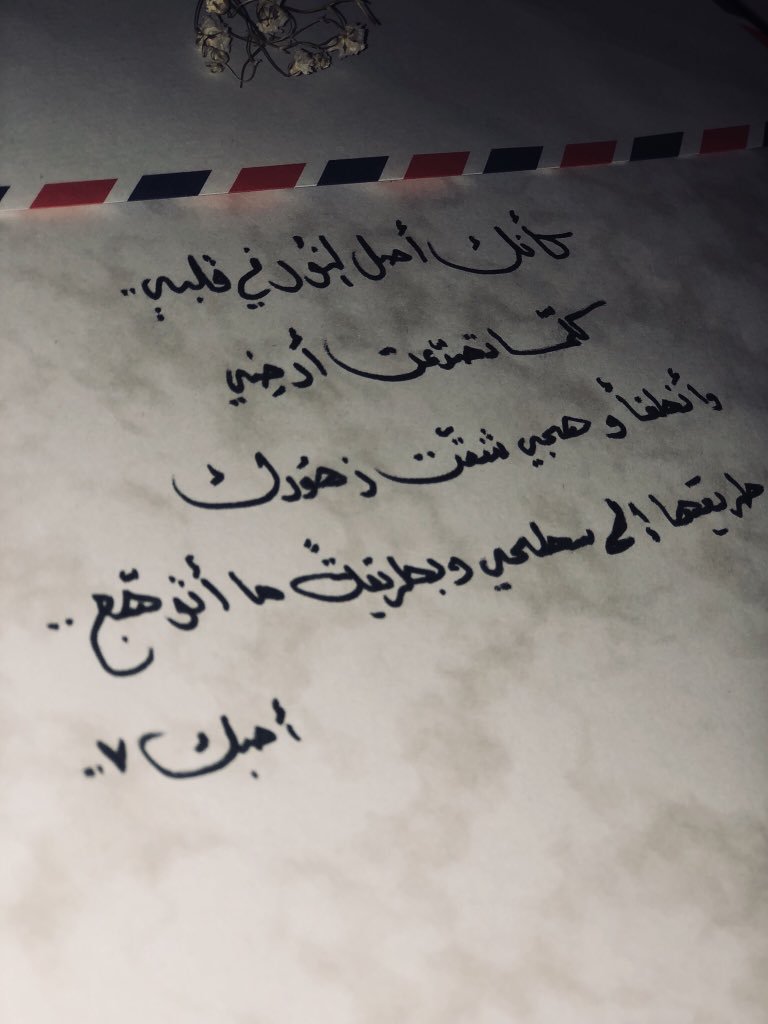 كأنك أصل النور في قلبي..
كلّما تصدّعت أرضي
وأنطفأ وهجي شقّت زهورك
طريقها إلى سطحي وبطريقةً ما أتوهّج..
أحبك ٧..